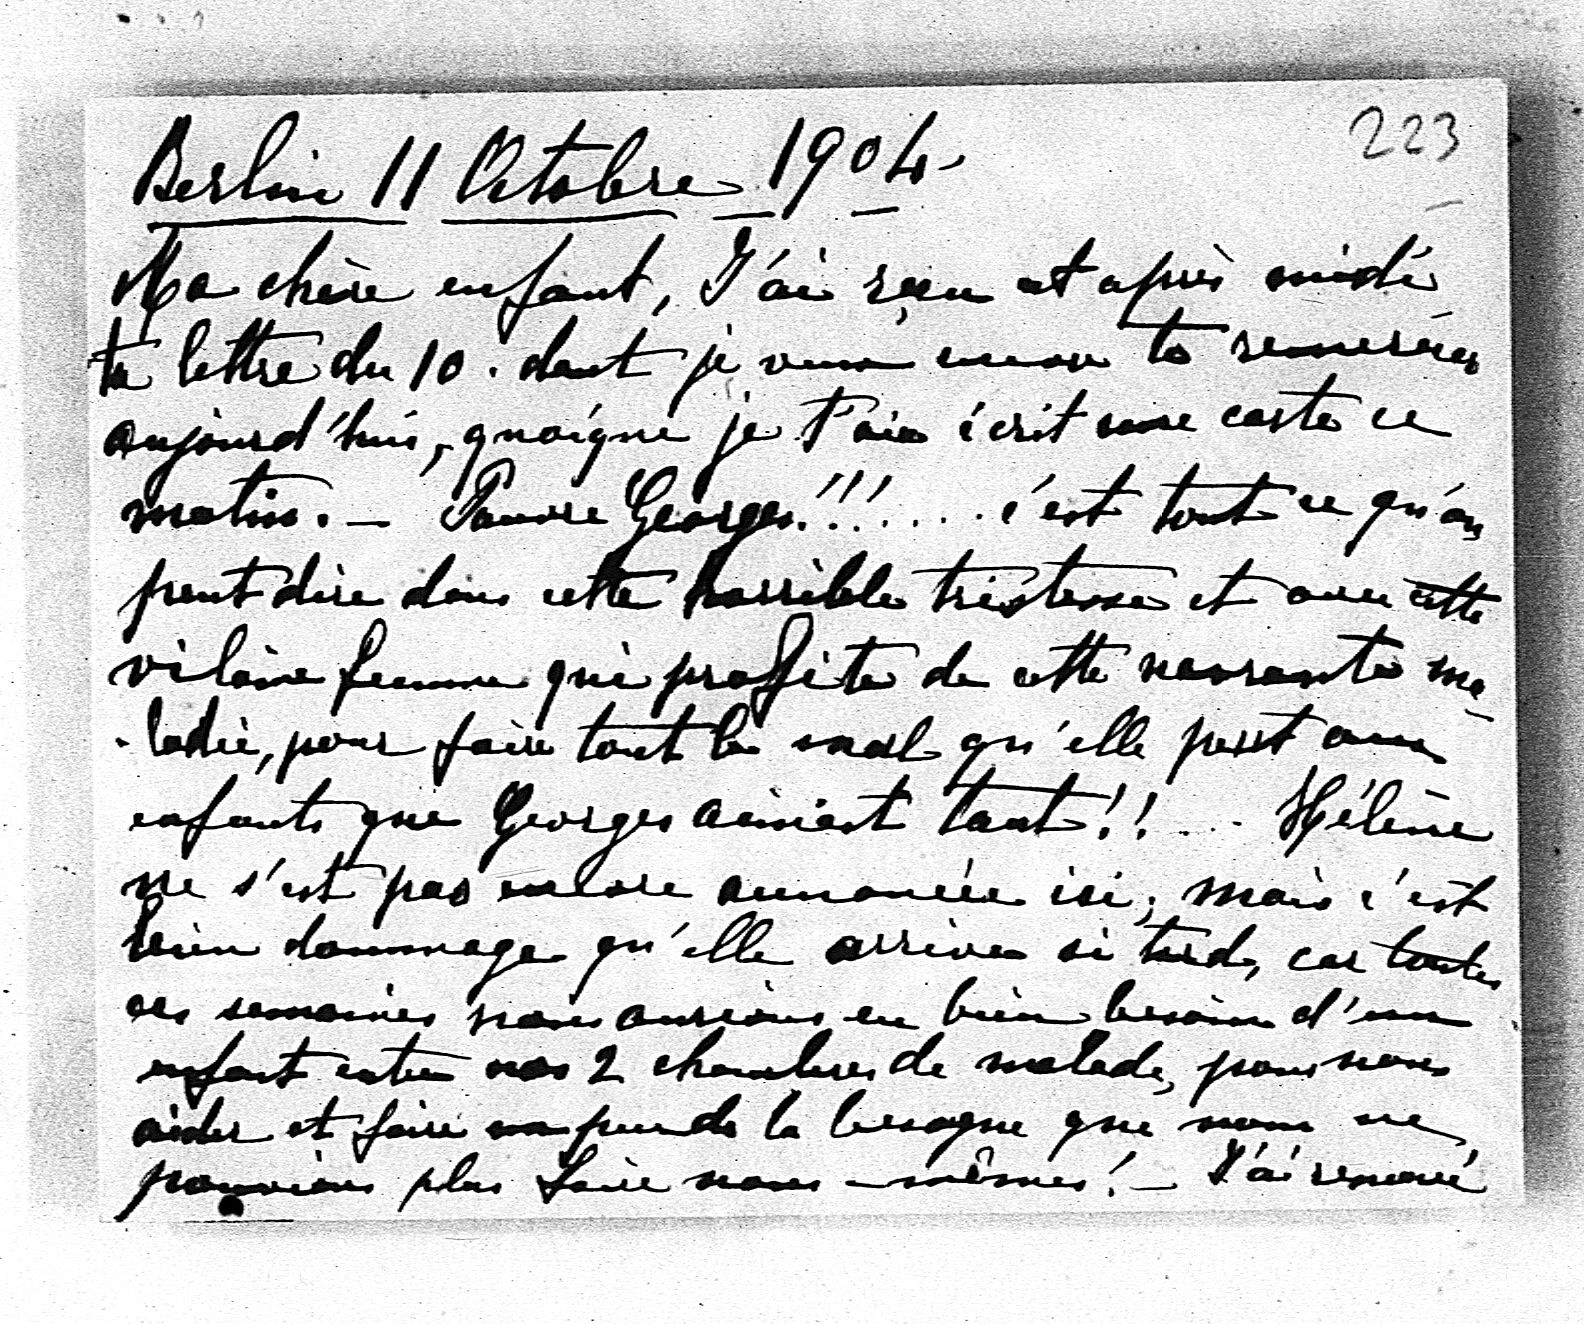 223
Berlin 11 Octobre 1904.
Ma chère enfant, J'ai reçu cet après midi
ta lettre du 10. dont je veux encore te remercier
aujourd'hui, quoique je t'aie écrit une carte ce
matin. — Pauvre Georges!!!..... c'est tout ce qu'on
peut dire dans cette horrible tristesse et avec cette
vilaine femme qui profite de cette navrante ma-
-ladie, pour faire tout le mal qu'elle peut aux
enfants que Georges aimait tant!! ... Hélène
ne s'est pas encore annoncée ici; mais c'est
bien dommage qu'elle arrive si tard, car toutes
ces semaines nous aurions eu bien besoin d'un
enfant entre nos 2 chambres de malade, pour nous
aider et faire un peu de la besogne que nous ne
pouvions plus faire nous-mêmes! — J'ai